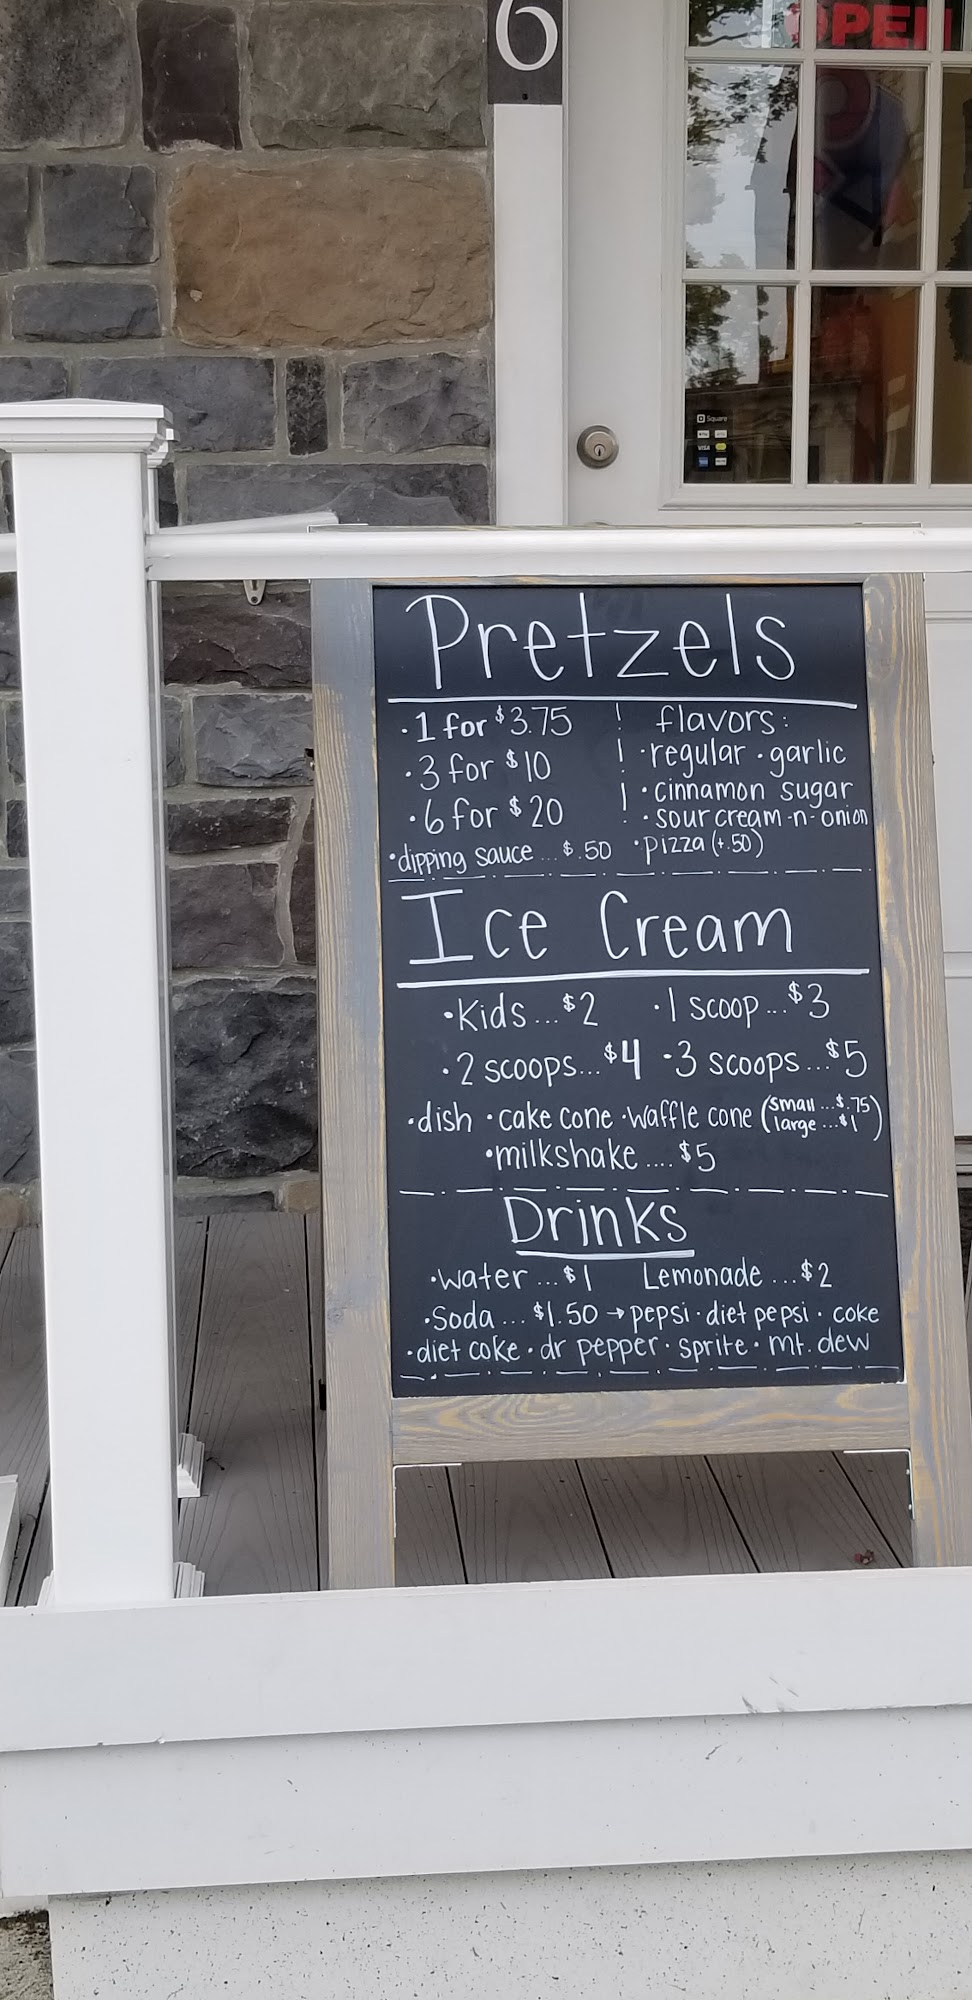 6
OPEN
Square
VISA
Pretzels
·1 for $3.75
·3 for $10
·6 for $20
·dipping sauce...$.50
flavors:
·regular ·garlic
·cinnamon sugar
·sour cream-n-onion
·pizza (+.50)
Ice Cream
·Kids...$2 ·1 scoop...$3
·2 scoops...$4 ·3 scoops...$5
·dish ·cake cone ·waffle cone (small...$.75
large...$1)
·milkshake....$5
Drinks
·water...$1 Lemonade...$2
·Soda...$1.50 →pepsi · diet pepsi · coke
·diet coke · dr pepper · sprite · mt. dew